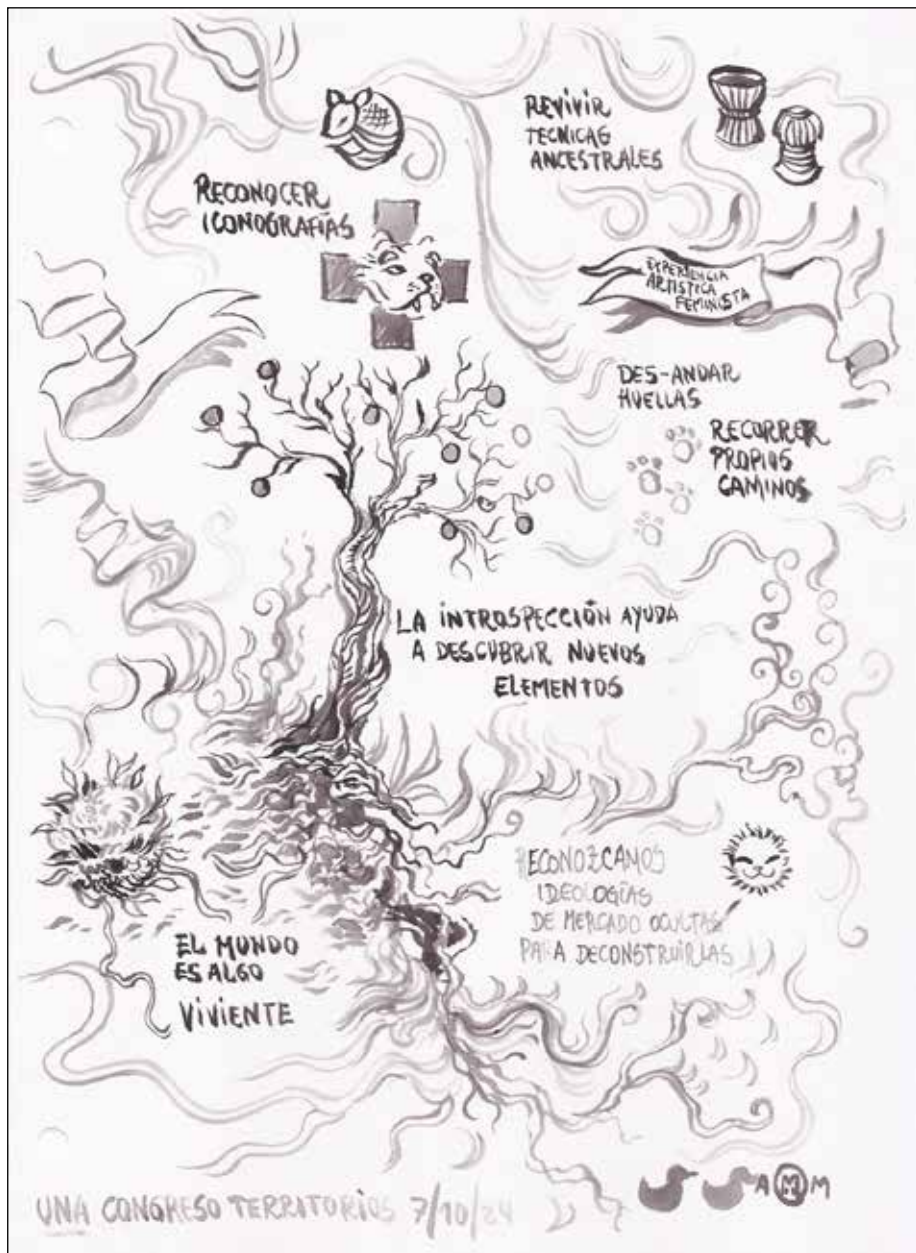 REVIVIR
TECNICAS
ANCESTRALES
RECONOCER
ICONOGRAFÍAS
EXPERIENCIA
ARTISTICA
FEMINISTA
DES-ANDAR
HUELLAS
RECORRER
PROPIOS
CAMINOS
LA INTROSPECCIÓN AYUDA
A DESCUBRIR NUEVOS
ELEMENTOS
RECONOZCAMOS
IDEOLOGÍAS
DE MERCADO OCULTAS
PARA DECONSTRUIRLAS
EL MUNDO
ES ALGO
VIVIENTE
UNA CONGRESO TERRITORIOS 7/10/24
A M M